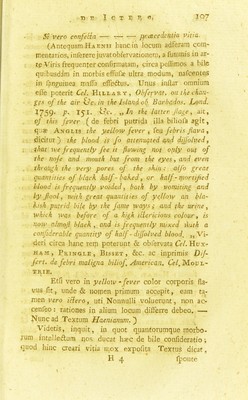 DE ICTERO. 107
Si vero confecta — — — præcedentia vitia.
(Antequam HAENII hanc in locum adferam com-
mentarios, inserere juvat observationem, a summis in ar-
te Viris frequenter confirmatam, circa pessimos a bile
quibusdam in morbis effusa ultra modum, nascentes
in sanguinea massa effectus. Unus instar omnium
esse poterit Cel. HILLARY, Observat. on the chan-
ges of the air &c. in the Island of Barbados, Lond.
1759. p. 151. &c. „In the latter stage, ait,
of this fever (de febri putrida illa biliosa agit,
quæ ANGLIS the yellow fever, seu febris flava,
dicitur) the blood is so attenuated and dissolved,
that we frequently see it flowing not only out of
the nose and mouth but from the eyes, and even
through the very pores of the skin: also great
quantities of black half-baked, or half-mortified
blood is frequently voided, both by vomiting and
by stool, with great quantities of yellow an bla-
kish putrid bile by the same ways; and the urine,
which was before of a high ictericious colour, is
now almost black, and is frequently mixed with a
considerable quantity of half-dissolved blood. „ Vi-
deri circa hanc rem poterunt & observata Cel. HUX-
HAM, PRINGLE, BISSET, &c. ac inprimis Dis-
sert. de febri maligna biliosa, American. Cel. MOUL-
TRIE.
Etsi vero in yellow-fever color corporis fla-
vus sit, unde & nomen primum accepit, eam ta-
men vero ictero, uti Nonnulli voluerunt, non ac-
censeo: rationes in alium locum differre debeo. —
Nunc ad Textum Haenianum.)
Videtis, inquit, in quot quantorumque morbo-
rum intellectum nos ducat hæc de bile consideratio;
quod hinc creari vitia mox exposita Textus dicat,
H 4 sponte